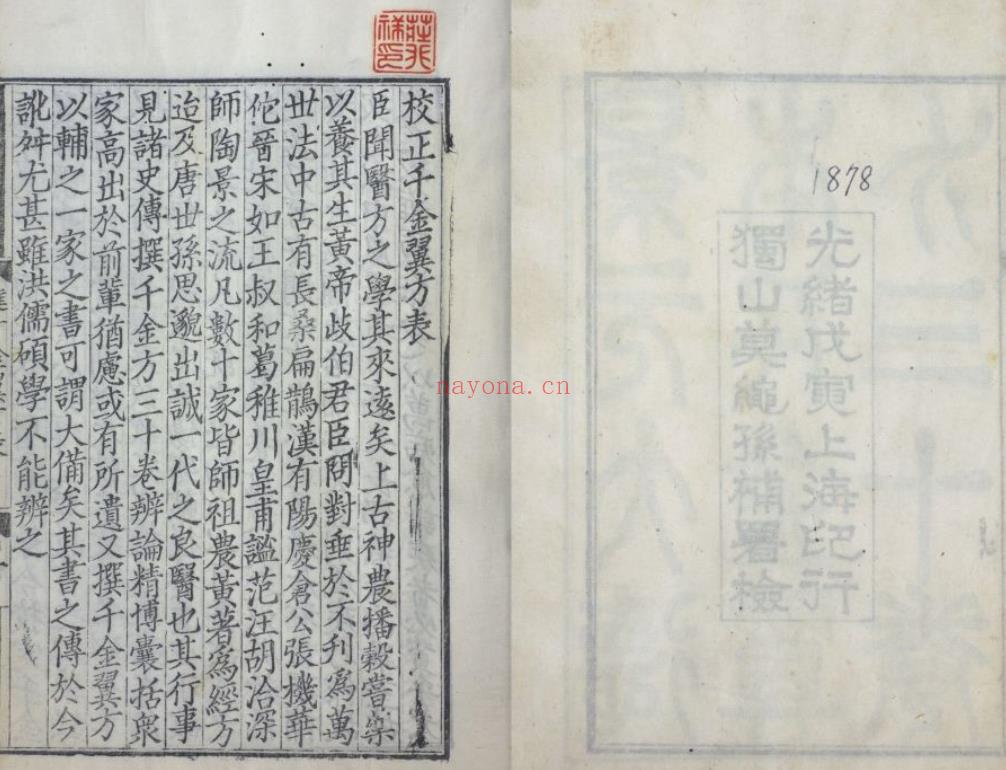 1878
光緒戊寅上海印行
獨山莫繩孫補署檢
校正千金翼方表
臣聞醫方之學其來遠矣上古神農播穀嘗藥
以養其生黃帝歧伯君臣問對垂於不刊爲萬
世法中古有長桑扁鵲漢有陽慶倉公張機華
佗晉宋如王叔和葛稚川皇甫謐范汪胡洽深
師陶景之流凡數十家皆師祖農黃著爲經方
迨及唐世孫思邈出誠一代之良醫也其行事
見諸史傳撰千金方三十卷辨論精博囊括衆
家高出於前輩猶慮或有所遺又撰千金翼方
以輔之一家之書可謂大備矣其書之傳於今
訛舛尤甚雖洪儒碩學不能辨之
nayona.cn